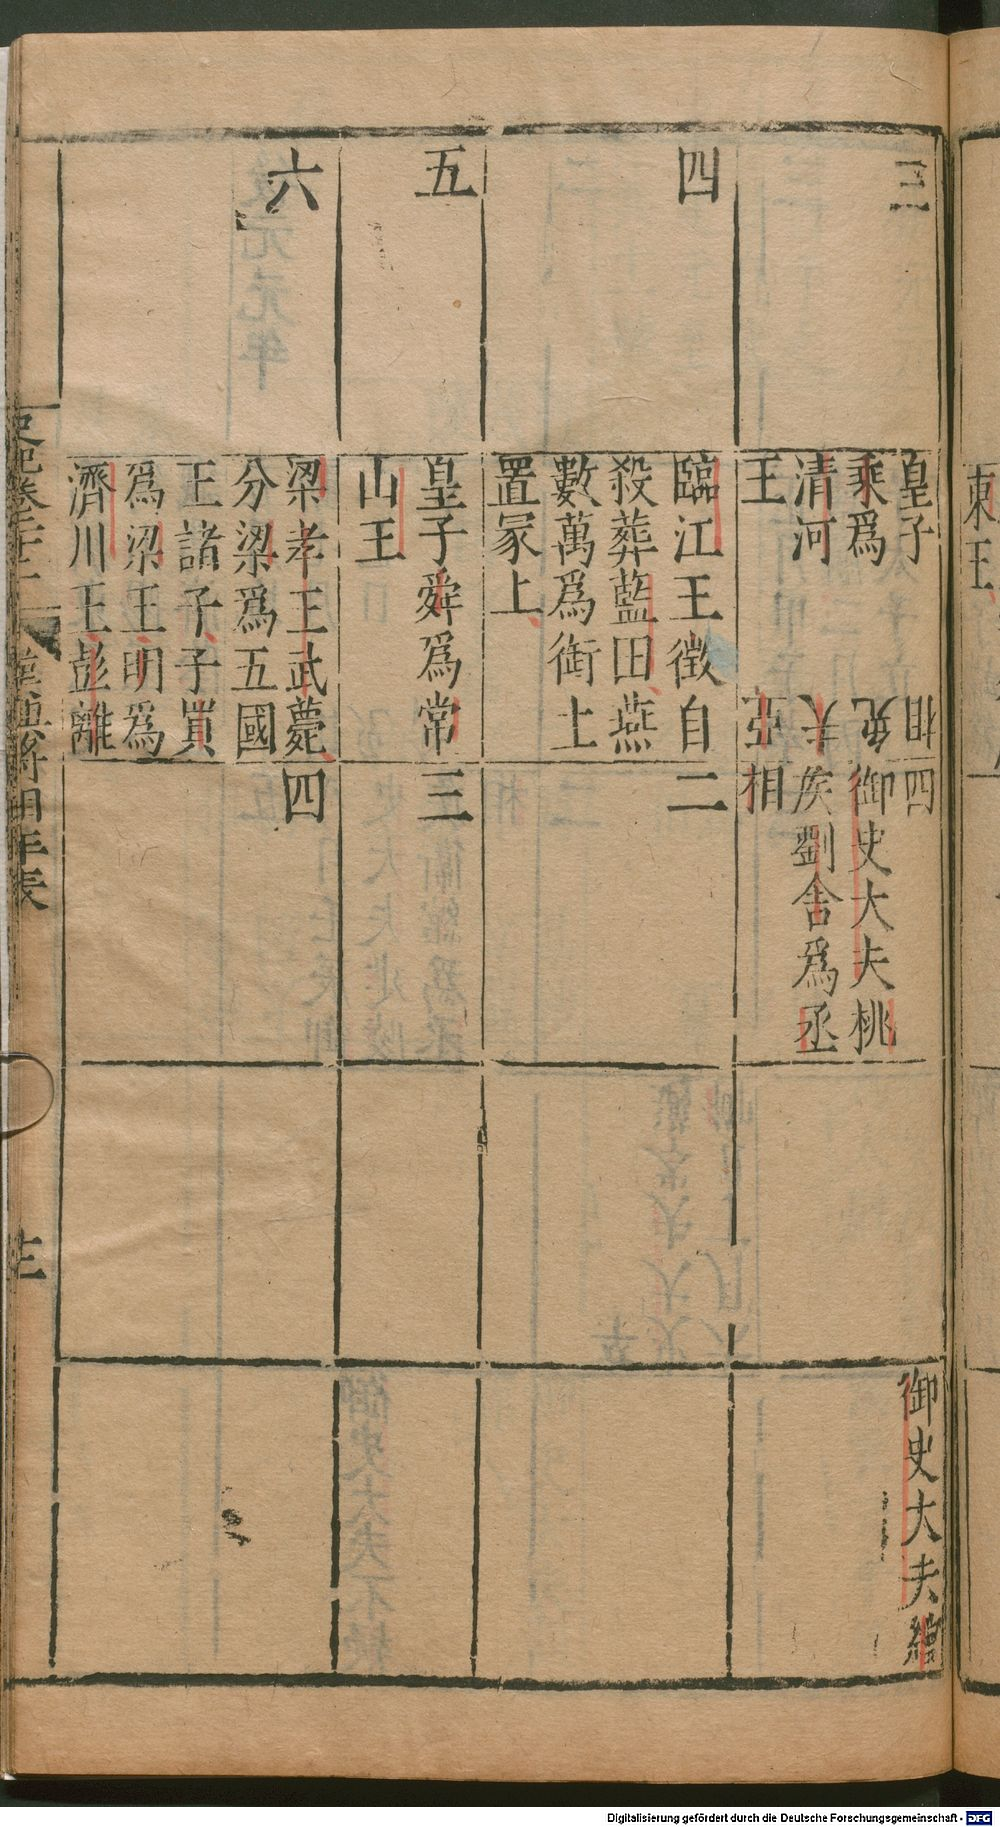 東王
三
皇子
乘爲
清河
王
亞
夫
免
相
四
御史大夫桃
侯劉舍爲丞
相
御史大夫綰
四
臨江王徵自
殺葬藍田燕
數萬爲銜土
置冢上
二
五
皇子舜爲常
山王
三
六
梁孝王武薨
分梁爲五國
王諸子子買
爲梁王明爲
濟川王彭離
四
史記卷二十二
漢興將相年表
Digitalisierung gefördert durch die Deutsche Forschungsgemeinschaft - DFG